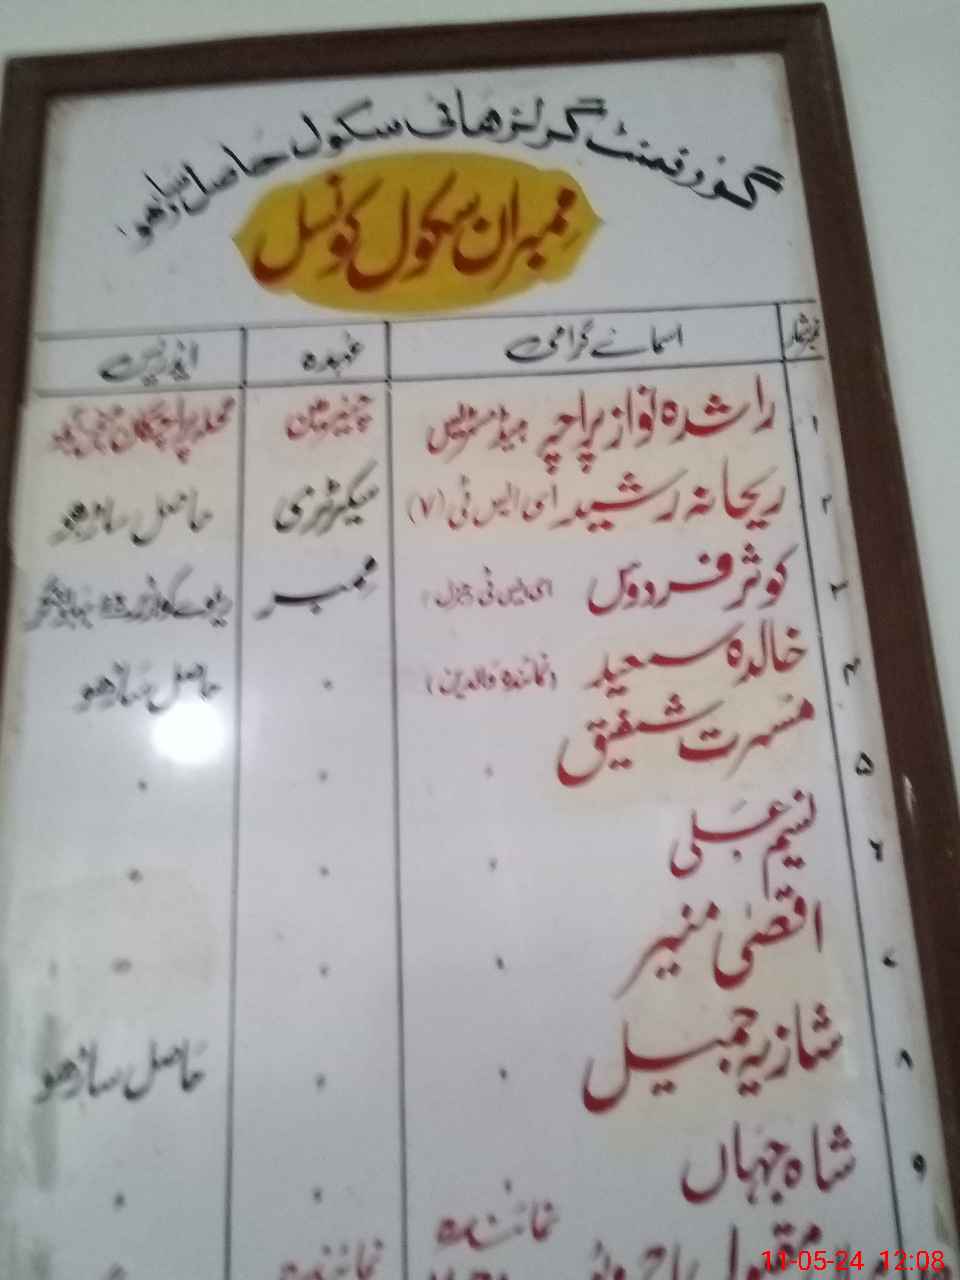 گورنمنٹ گرلز ہائی سکول حاصل ساڑھو
ممبران سکول کونسل
نمبرشمار اسمائے گرامی عہدہ ایڈریس
۱ راشدہ نواز پراچہ ہیڈ مسٹریس چیئرمین محلہ پراچگان
۲ ریحانہ رشید ای ایس ٹی (V) سیکرٹری حاصل ساڑھو
۳ کوثر فردوس ای ایس ٹی جنرل ممبر ریلوے کوارٹر
۴ خالدہ سعید (نمائندہ والدین) حاصل ساڑھو
۵ مسرت شفیق
۶ نسیم علی
۷ اقصٰی منیر
۸ شازیہ جمیل حاصل ساڑھو
۹ شاہ جہاں
مقبول نمائندہ نمائندہ
11-05-24 12:08